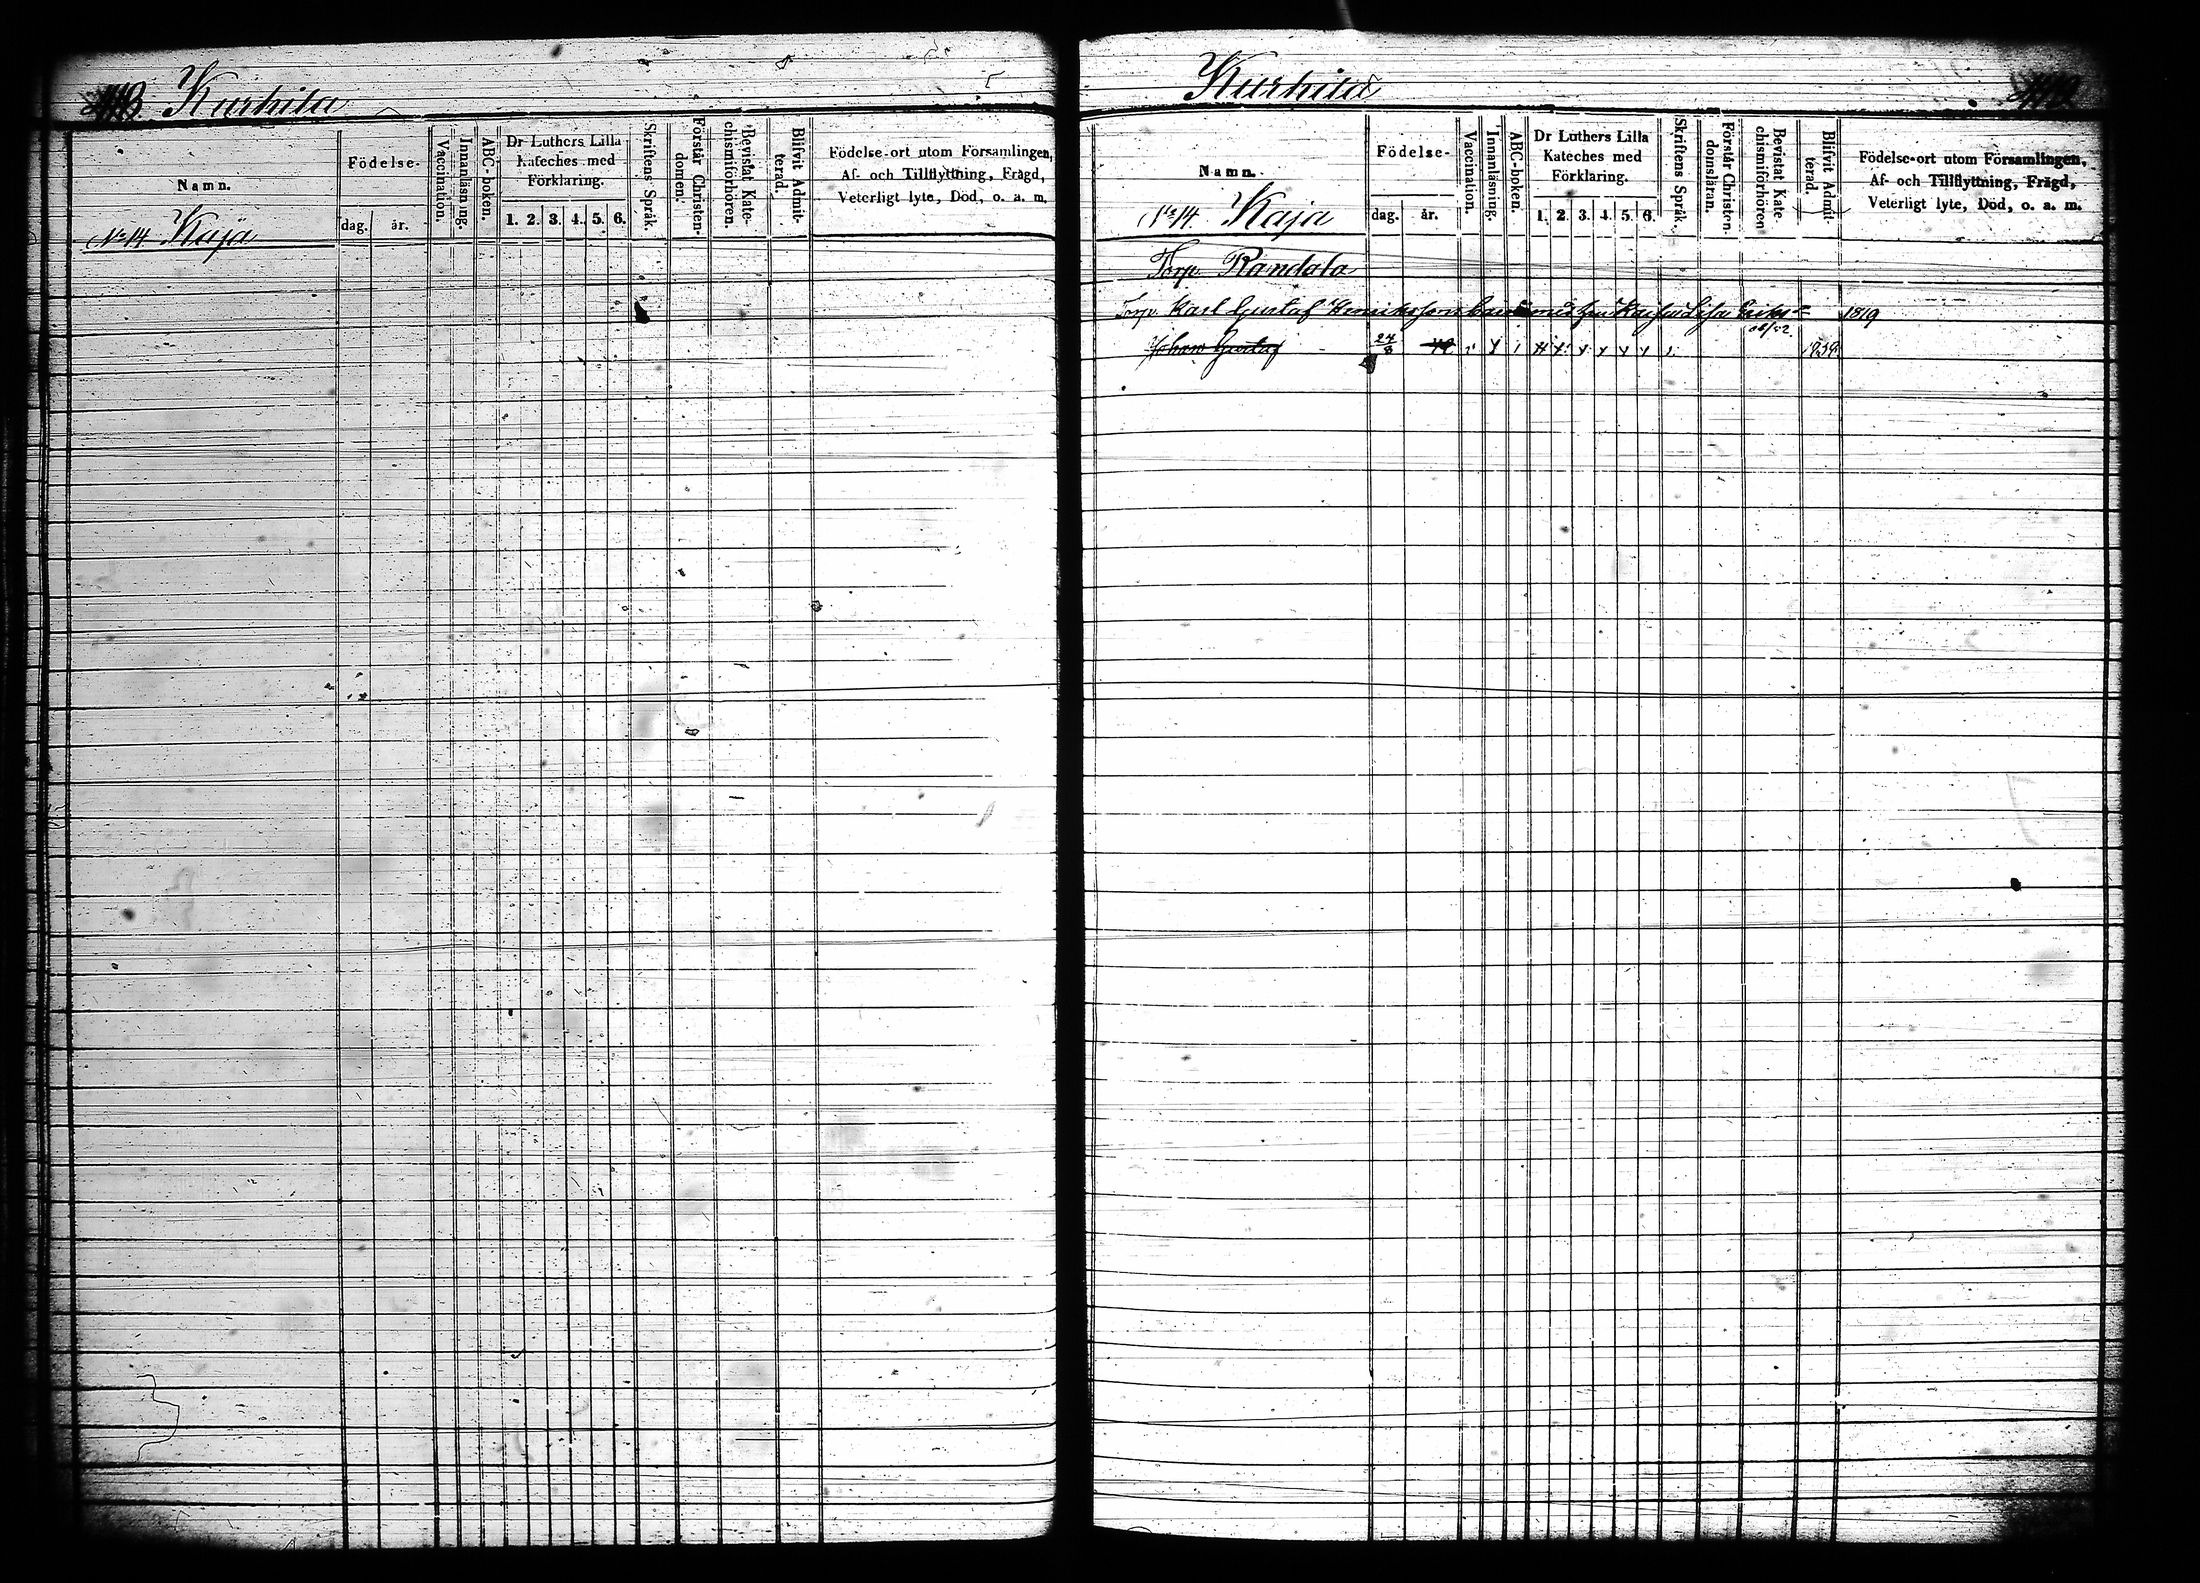 Kurhila
Namn.
Födelse-
dag. år.
Vaccination.
Innanläsning.
ABC-boken.
Dr Luthers Lilla
Kateches med
Förklaring.
1. 2. 3. 4. 5. 6.
Skriftens Språk.
Förstår Christen-
domen.
Bevistat Kate-
chismiförhören.
Blifvit Admit-
terad.
Födelse-ort utom Församlingen,
Af- och Tillflyttning, Frägd,
Veterligt lyte, Död, o. a. m.
No 14 Kaja
Kurhila
Namn.
Födelse-
dag. år.
Vaccination.
Innanläsning.
ABC-boken.
Dr Luthers Lilla
Kateches med
Förklaring.
1. 2. 3. 4. 5. 6.
Skriftens Språk.
Förstår Christen-
domsläran.
Bevistat Kate
chismiförhören
Blifvit Admit-
terad.
Födelse-ort utom Församlingen,
Af- och Tillflyttning, Frägd,
Veterligt lyte, Död, o. a. m.
No 14. Kaja
Torp. Randala
Torp. Karl Gustaf Henriksson Kaisa Lisa 1819
Johan Gustaf 24/8